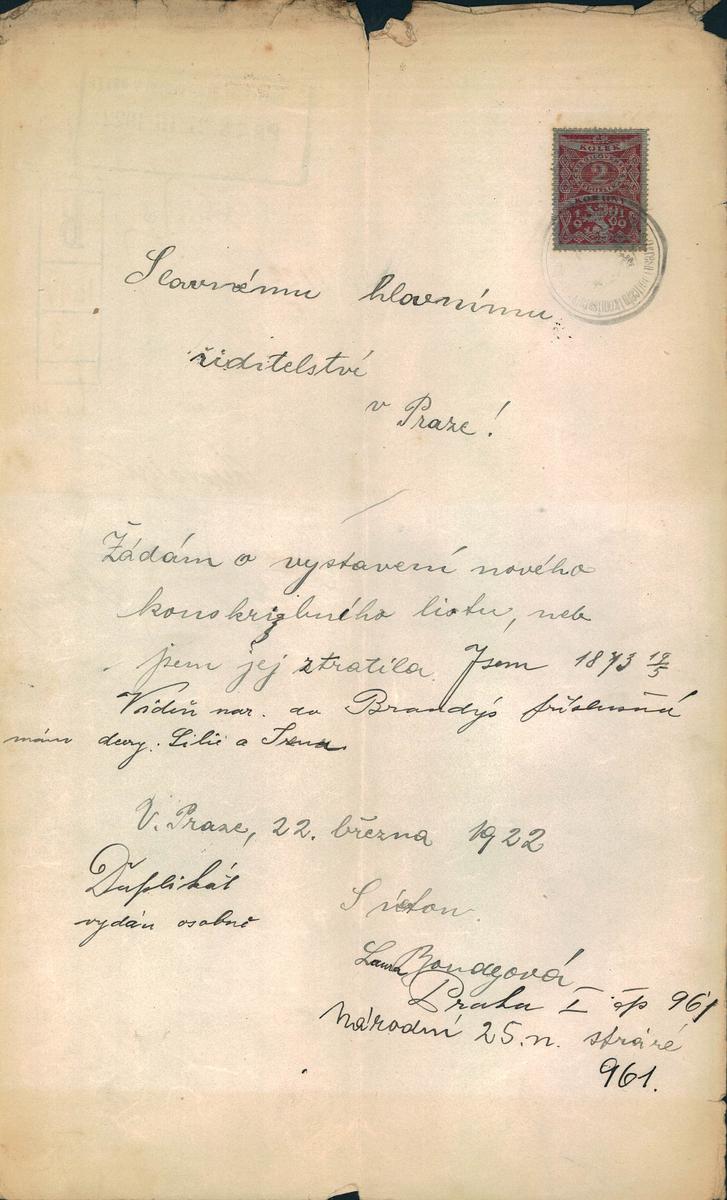 KOLEK
2
KORUNY
1919
Slavnému hlavnímu
ředitelství
v Praze!
Žádám o vystavení nového
konskribčního listu, neb
jsem jej ztratila. Jsem 1873 12/5
Vídeň nar. do Brandýs příslušná
mám dcery. Lilie a Irena
V. Praze, 22. března 1922
Duplikát
vydán osobně
S úctou
Laura Bondyová
Praha I čp 961
Národní 25. n. stráže
961.